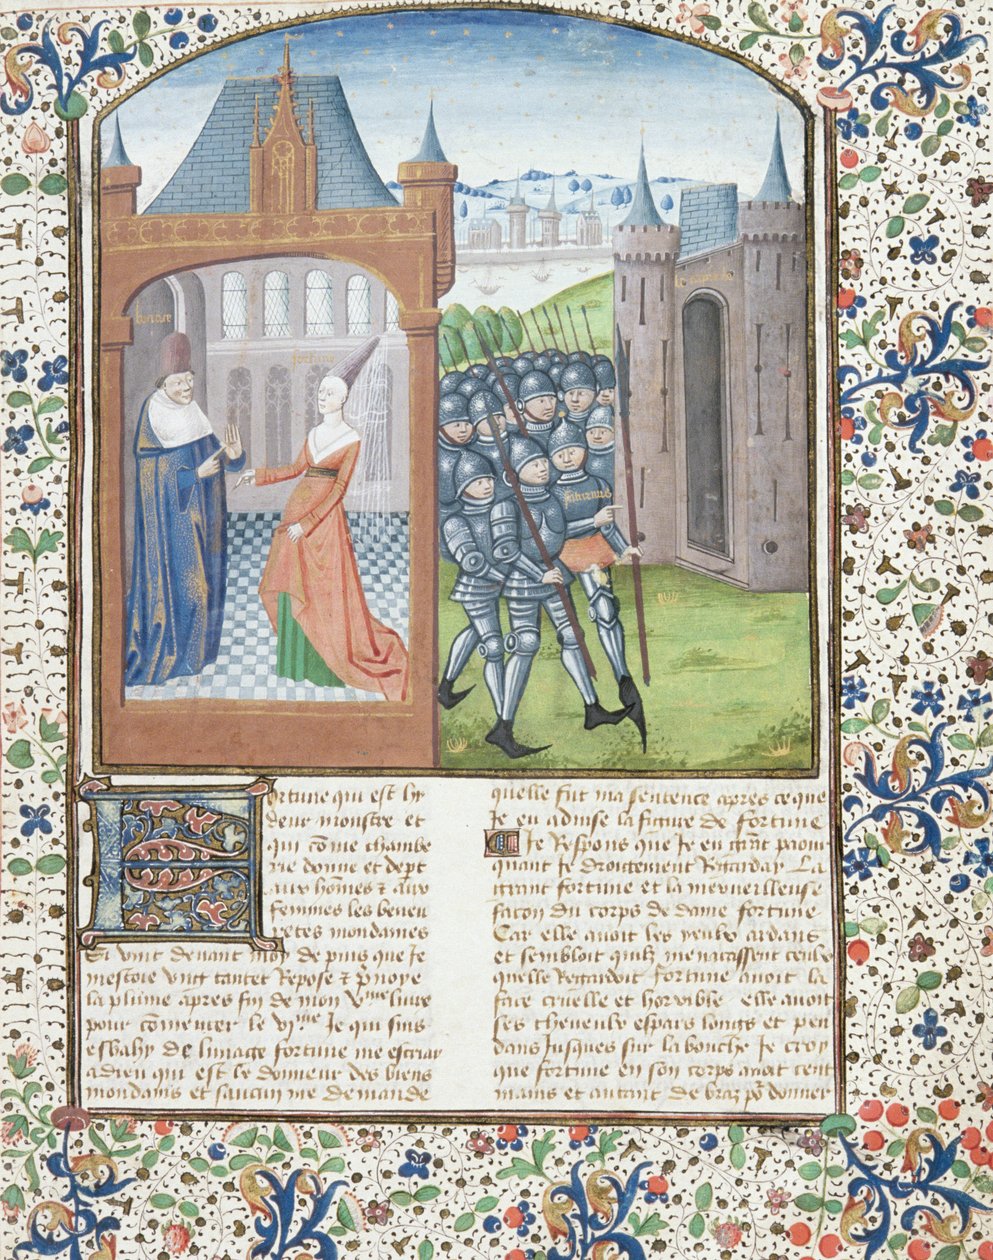 bocace
fortune
saturnius
Fortune qui est hy
deux monstre et
qui cõme chambe
riere donne et dept
aux hõmes τ aux
femmes les beneu
retes mondaines
Si vint devant moy depuis que Je
mestoie ung tantet Repose τ p̃noye
la plume apres fin de mon vᵐᵉ livre
pour cõmencer le vjᵐᵉ Je qui suis
esbahy de limage fortune me escriay
a dieu qui est le donneur des biens
mondains et saucun me demande
quelle fut ma sentence apres ce que
Je eu advise la figure de fortune
Je Respons que Je eu grãt paour
quant Je droictement Regarday La
grant fortune et la merveilleuse
facon du corps de dame fortune
Car elle avoit les yeulx ardans
et sembloit quilz menacassent ceulx
quelle Regardoit fortune avoit la
face cruelle et horrible elle avoit
ses cheveulx espars longs et pen
dans Jusques sur la bouche Je croy
que fortune en son corps avoit cent
mains et autant de braz po᷑ donner